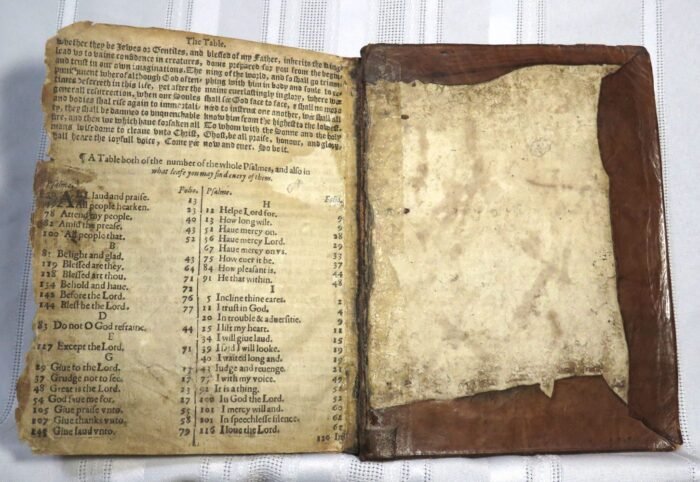 The Table.
whether they be Jewes or Gentiles, and
lead vs to vaine confidence in creatures,
and trust in our own imaginations. The
punishment wherof although God often
times deferreth in this life, yet after the
generall resurrection, when our soules
and bodies shal rise again to immortali-
ty, they shall be damned to vnquenchable
fire, and then we which haue forsaken all
mans wisedome to cleaue vnto Christ,
shall heare the ioyfull voice, Come ye
blessed of my Father, inherite the king-
dome prepared for you from the begin-
ning of the world, and so shall go trium-
phing with him in body and soule to re-
maine euerlastingly in glory, where we
shall see God face to face, & shall no more
need to instruct one another, we shall all
know him from the highest to the lowest.
To whom with the Sonne and the holy
Ghost, be all praise, honour, and glory,
now and euer. So be it.
¶ A Table both of the number of the whole Psalmes, and also in
what leafe you may find euery of them.
Psalme. Folio.
All laud and praise. 13
All people hearken. 23
78 Attend my people. 40
Amidst the prease. 43
100 All people that. 52
B
81 Be light and glad. 43
119 Blessed are they. 64
128 Blessed art thou. 71
134 Behold and haue. 72
142 Before the Lord. 76
144 Blest be the Lord. 77
D
83 Do not O God refraine. 44
E
127 Except the Lord. 71
G
29 Giue to the Lord.
37 Grudge not to see.
48 Great is the Lord.
54 God saue me for.
105 Giue praise vnto. 55
107 Giue thanks vnto. 58
149 Giue laud vnto. 79
Psalme. Folio.
H
12 Helpe Lord for.
13 How long wilt. 9
51 Haue mercy on. 28
56 Haue mercy Lord. 29
67 Haue mercy on vs. 33
75 How euer it be. 37
84 How pleasant is. 44
91 He that within. 48
I
5 Incline thine eares. 2
11 I trust in God. 4
20 In trouble & aduersitie. 9
25 I lift my heart. 11
34 I will giue laud. 15
39 I said I will looke. 19
40 I waited long and. 19
43 Iudge and reuenge. 21
77 I with my voice. 49
92 It is a thing. 56
100 In God the Lord. 52
101 I mercy will and. 60
In speechlesse silence.
116 I loue the Lord.